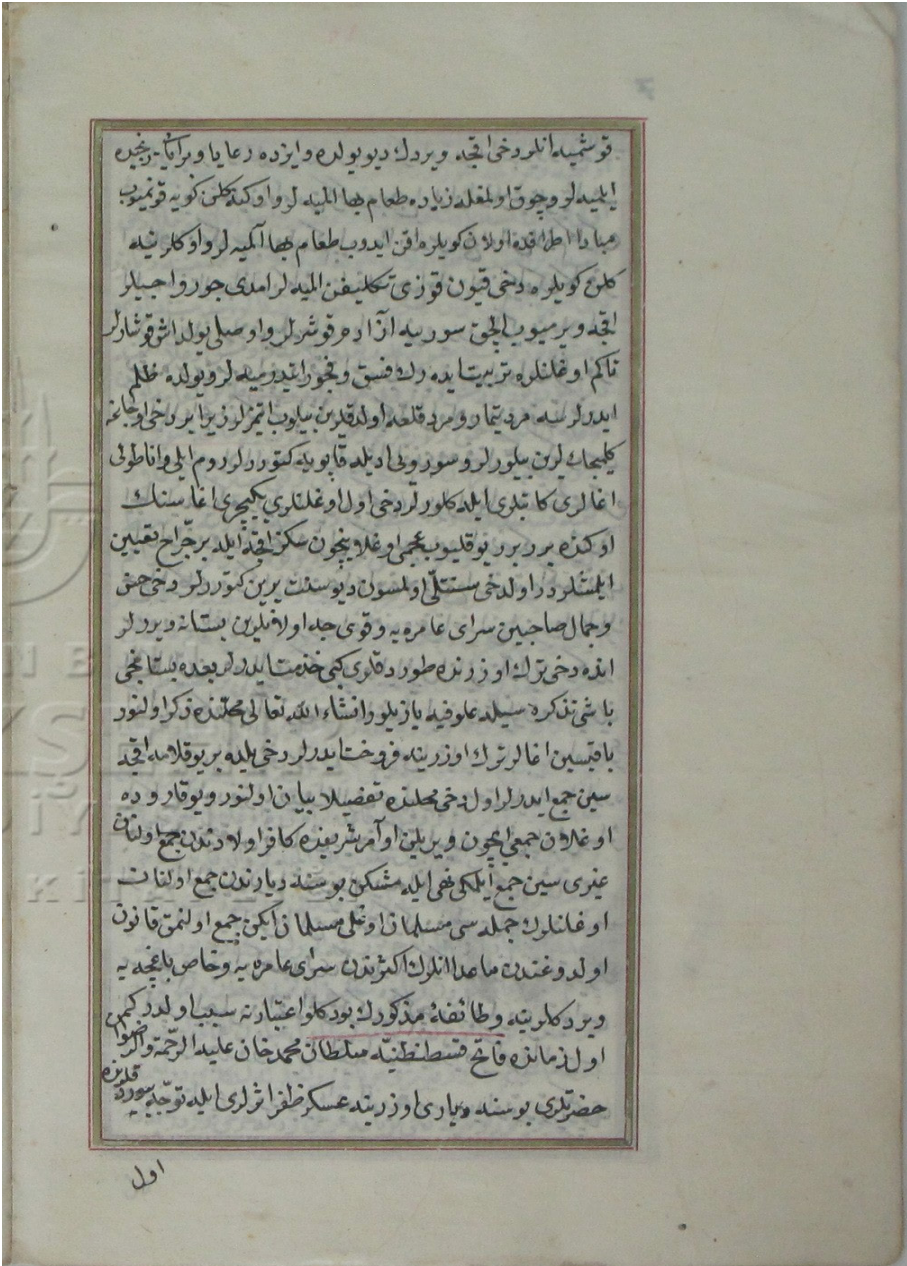 قوشميه انلر دخی اقچه ویردك دیو یولده و ایزده رعایا و برایا رنجیده
ایلمیه لر و چوق اولمغله زیاده طعام بها المیه لر و اوكنه كلن كویه قونمیوب
مبادا اطرافده اولان كویلره اقن ایدوب طعام بها آلمیه لر و اوكلرینه
كلن كویلره دخی قیون قوزی تكلیفن المیه لر امدی جوروا جیلر
اقچه ویرمیوب الجق سوریيه آزاده قوشرلر و اوصلی یولداش قوشارلر
تاكم اوغلنلره تربیت ایده رك فسق و فجور ایتدرمیه لر و یولده ظلم
ایدرلرسه مرد تیمار و مرد قلعه اولدقلرین بیلوب ایتمزلر زیرا بر دخی اوجاغه
كلمیجكلرین بیلورلر و سوریی ادیله قاپویه كتوررلر روم ایلی و اناطولی
اغالری كاتبلری ایله كلورلر دخی اول اوغلنلری یكیچری اغاسنك
اوكنده برر برر یوقلیوب عجمی اوغلانیچون سكز اقچه ایله بر جرّاح تعیین
ایلمشلردر اولدخی سنتلّی اولمسون دیو سنت یرین كوررلر دخی حسن
و جمال صاحبین سرای عامره یه و قوی جه اولانلرین بستانه ویررلر
انده دخی ترك اوزرنده طوردقلری كبی خذمت ایدرلر بعده بستانجی
باشی تذكره سیله علوفیه یازیلور انشاء الله تعالی محلّنده ذكر اولنور
باقیسین اغالر ترك اوزرینه فروخت ایدرلر دخی یلده بر یوقلامه اقچه
سین جمع ایدرلر اول دخی محلنده تفضیلا بیان اولنور و یوقاروده
اوغلان جمعی ایچون ویریلن اوامر شریفده كافر اولادندن جمع اولنان
غیری سین جمع ایلمكی نهی ایله مشكن بوسنه دیارندن جمع اولنان
اوغلنلرك جمله سی مسلمان اوغلی مسلمان ایكن جمع اولنمق قانون
اولدوغندن ماعدا انلرك اكثرندن سرای عامره یه و خاص باغچه یه
ویردكلرینه و طائفۀ مذكورك بودكلو اعتبارنه سبب اولدر كیم
اول زمانده فاتح قسطنطنیّه سلطان محمد خان علیه الرّحمة و الرضوان
حضرتلری بوسنه دیاری اوزرینه عسكر ظفر اثرلری ایله توجّه بیوردقلرنده
اول